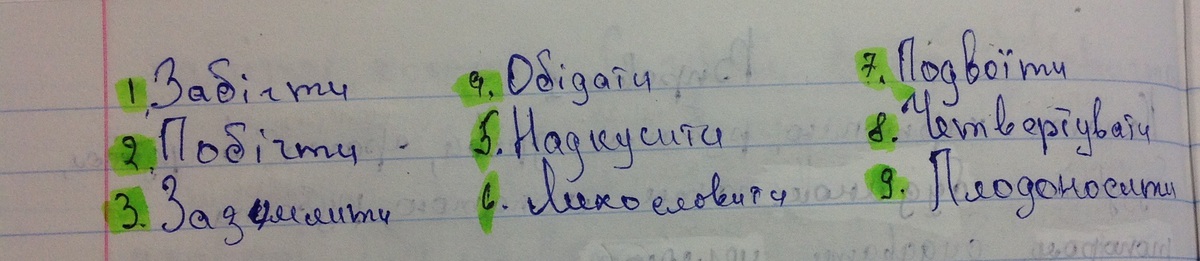 1. Забігти
2. Побігти
3. Заземлити
4. Обідати
5. Надкусити
6. Лихословити
7. Подвоїти
8. Четвертувати
9. Плодоносити